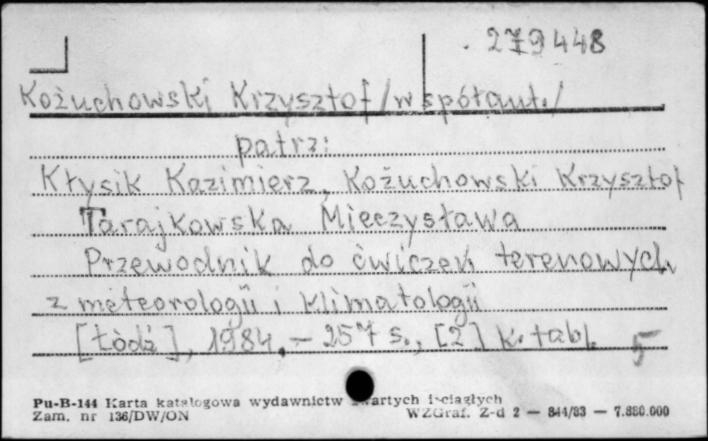 279448
Kożuchowski Krzysztof /współaut./
patrz:
Kłysik Kazimierz, Kożuchowski Krzysztof
Tarajkowska Mieczysława
Przewodnik do ćwiczeń terenowych
z meteorologii i klimatologii
[Łódź], 1984. — 257 s., [2] k. tabl. 5
Pu-B-144 Karta katalogowa wydawnictw zwartych i ciągłych
Zam. nr 136/DW/ON WZGraf. Z-d 2 — 844/83 — 7.880.000